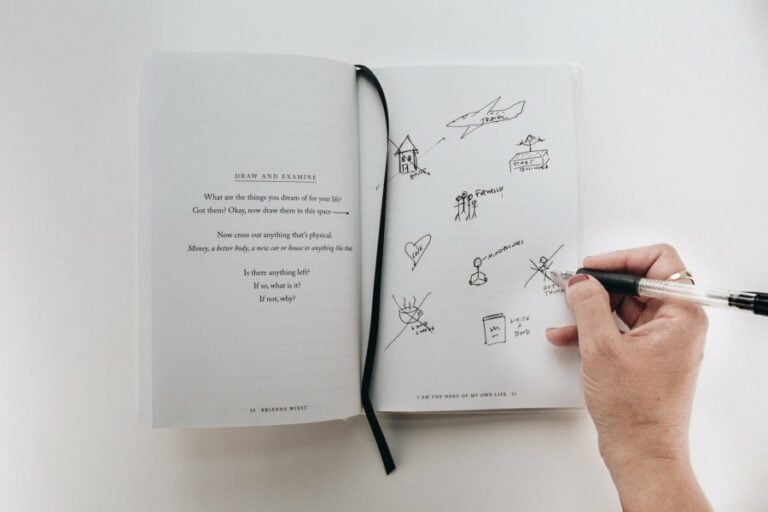 DRAW AND EXAMINE
What are the things you dream of for your life?
Got them? Okay, now draw them in this space
Now cross out anything that's physical.
Money, a better body, a new car or house or anything like that.
Is there anything left?
If so, what is it?
If not, why?
50 BRIANNA WIEST
TRAVEL
HOUSE
START
BUSINESS
FAMILY
LOVE
MINDFULNESS
GET
THIN
GOOD
COFFEE
WRITE A
BOOK
I AM THE HERO OF MY OWN LIFE 51